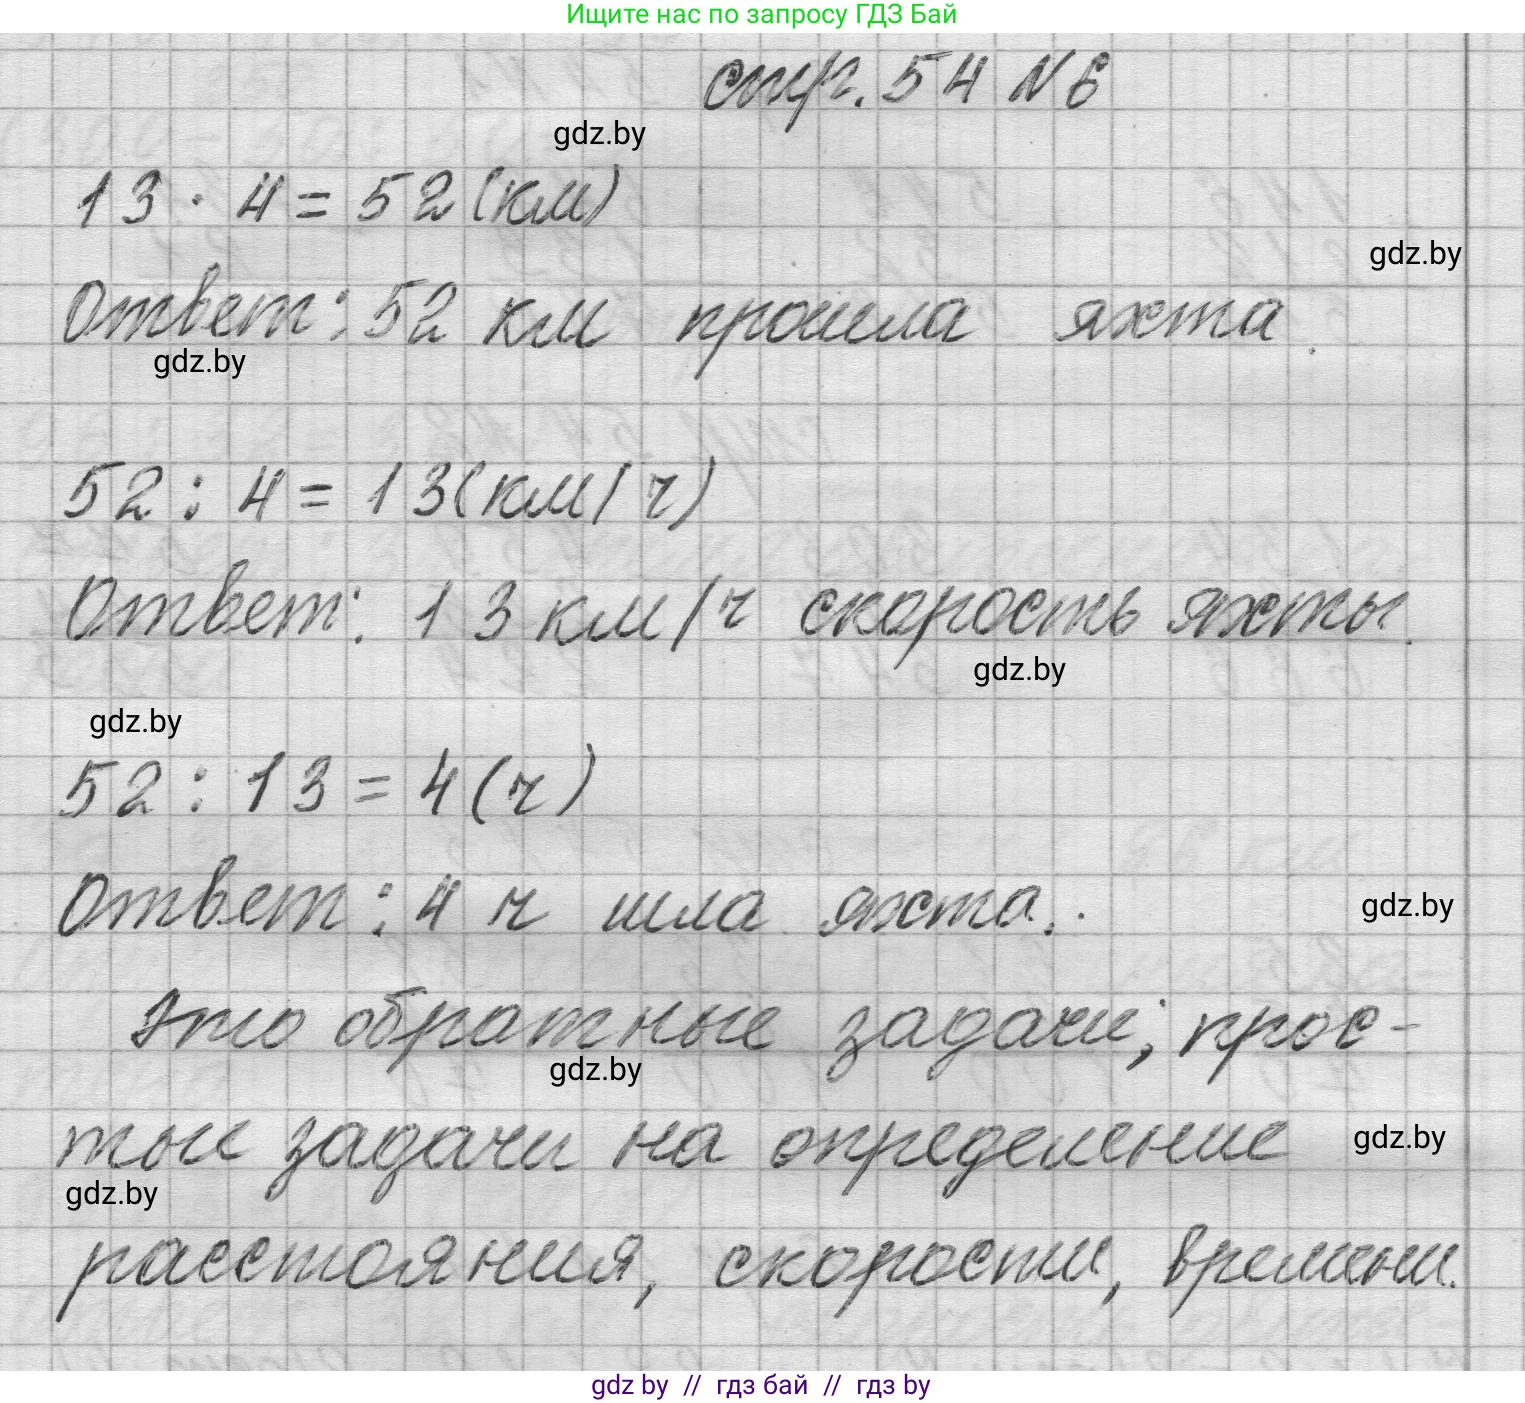 Ищите нас по запросу ГДЗ Бай
стр. 54 N 6
gdz.by
13 · 4 = 52 (км)
gdz.by
Ответ: 52 км прошла яхта.
gdz.by
52 : 4 = 13 (км/ч)
Ответ: 13 км/ч скорость яхты.
gdz.by
gdz.by
52 : 13 = 4 (ч)
Ответ: 4 ч шла яхта.
gdz.by
Это обратные задачи; прос-
gdz.by
тые задачи на определение
gdz.by
gdz.by
расстояния, скорости, времени.
gdz by // гдз бай // гдз by